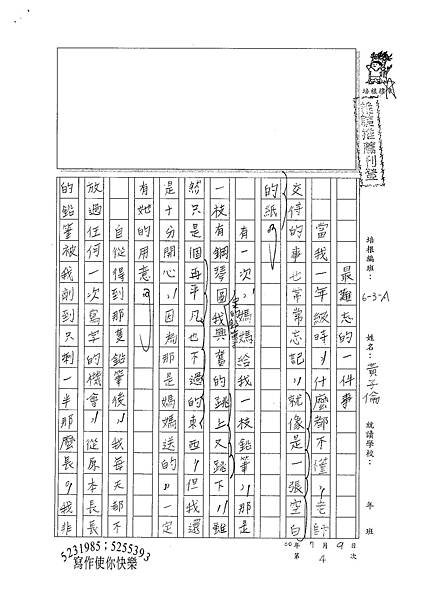 培根編班：6-3-A 姓名：黃子倫 就讀學校： 年 班
00年7月9日 第4次
最難忘的一件事
當我一年級時，什麼都不懂，老師
交待的事也常常忘記，就像是一張空白
的紙。
有一次，媽媽給我一枝鉛筆，那是
一枝有鋼琴圖我興奮的跳上又跳下，雖
然只是個再平凡也不過的東西，但我還
是十分開心，因為那是媽媽送的，一定
有她的用意。
自從得到那隻鉛筆後，我每天都不
放過任何一次寫字的機會，從原本長長
的鉛筆被我削到只剩一半那麼長，我非
5231985；5255393
寫作使你快樂